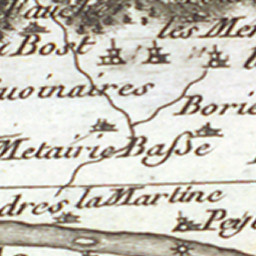 les Mer
Bost
uoinaires
Borie
Metairie Basse
dres la Martine
Pey